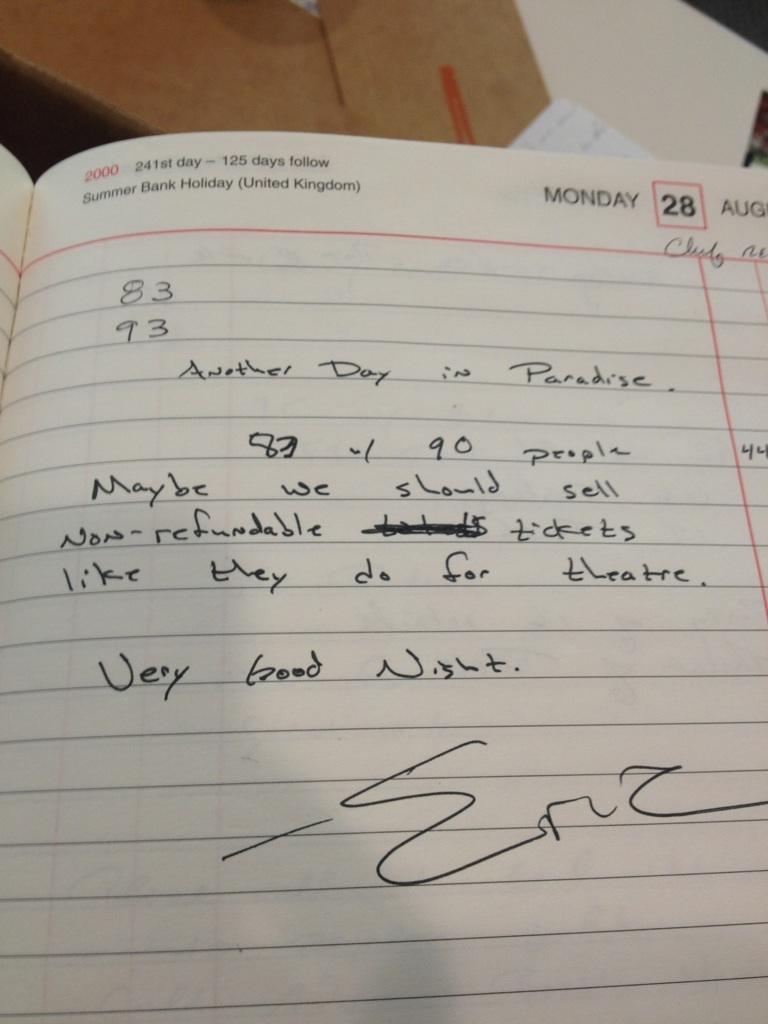 2000 241st day – 125 days follow
Summer Bank Holiday (United Kingdom)
MONDAY 28 AUG
Club re
83
93
Another Day in Paradise.
83 w/ 90 people
44
Maybe we should sell
Non-refundable tickets
like they do for theatre.
Very Good Night.
– Eric